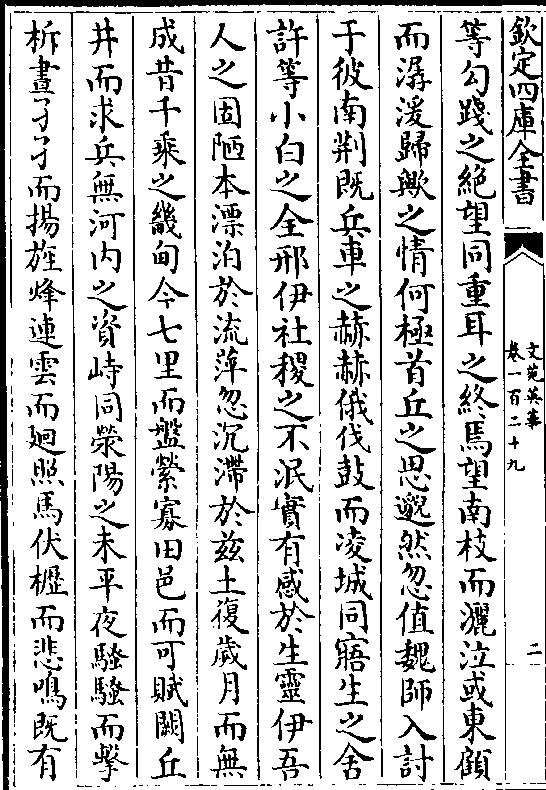 欽定四庫全書
文苑英華
卷一百二十九
二
等勾踐之絶望同重耳之終焉望南枝而灑泣或東顧
而潺湲歸歟之情何極首丘之思邈然忽值魏師入討
于彼南荆既兵車之赫赫俄伐鼓而凌城同寤生之舍
許等小白之全邢伊社稷之不泯實有感於生靈伊吾
人之固陋本漂泊於流萍忽沉滯於兹土復歲月而無
成昔千乘之畿甸今七里而盤縈寡田邑而可賦闕丘
井而求兵無河内之資峙同滎陽之未平夜騷騷而擊
柝晝孑孑而揚旌烽連雲而迴照馬伏櫪而悲鳴既有